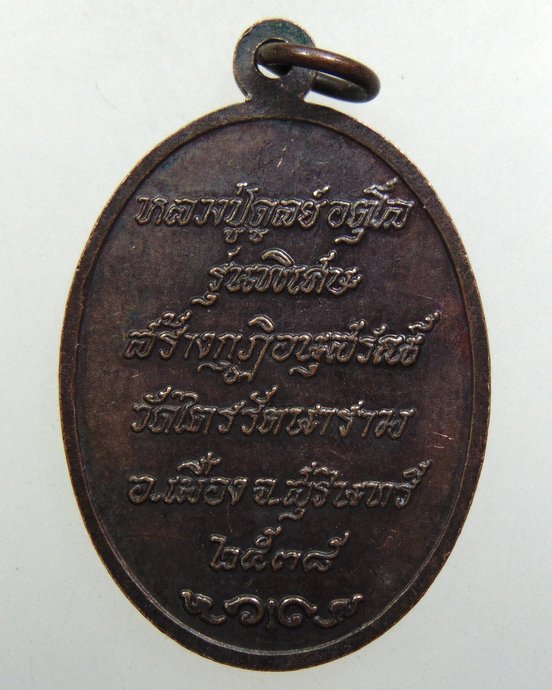 หลวงปู่ดูลย์ อตุโล
รุ่นพิเศษ
สร้างกุฏิอนุสรณ์
วัดไตรรัตนาราม
อ.เมือง จ.สุรินทร์
๒๕๓๘